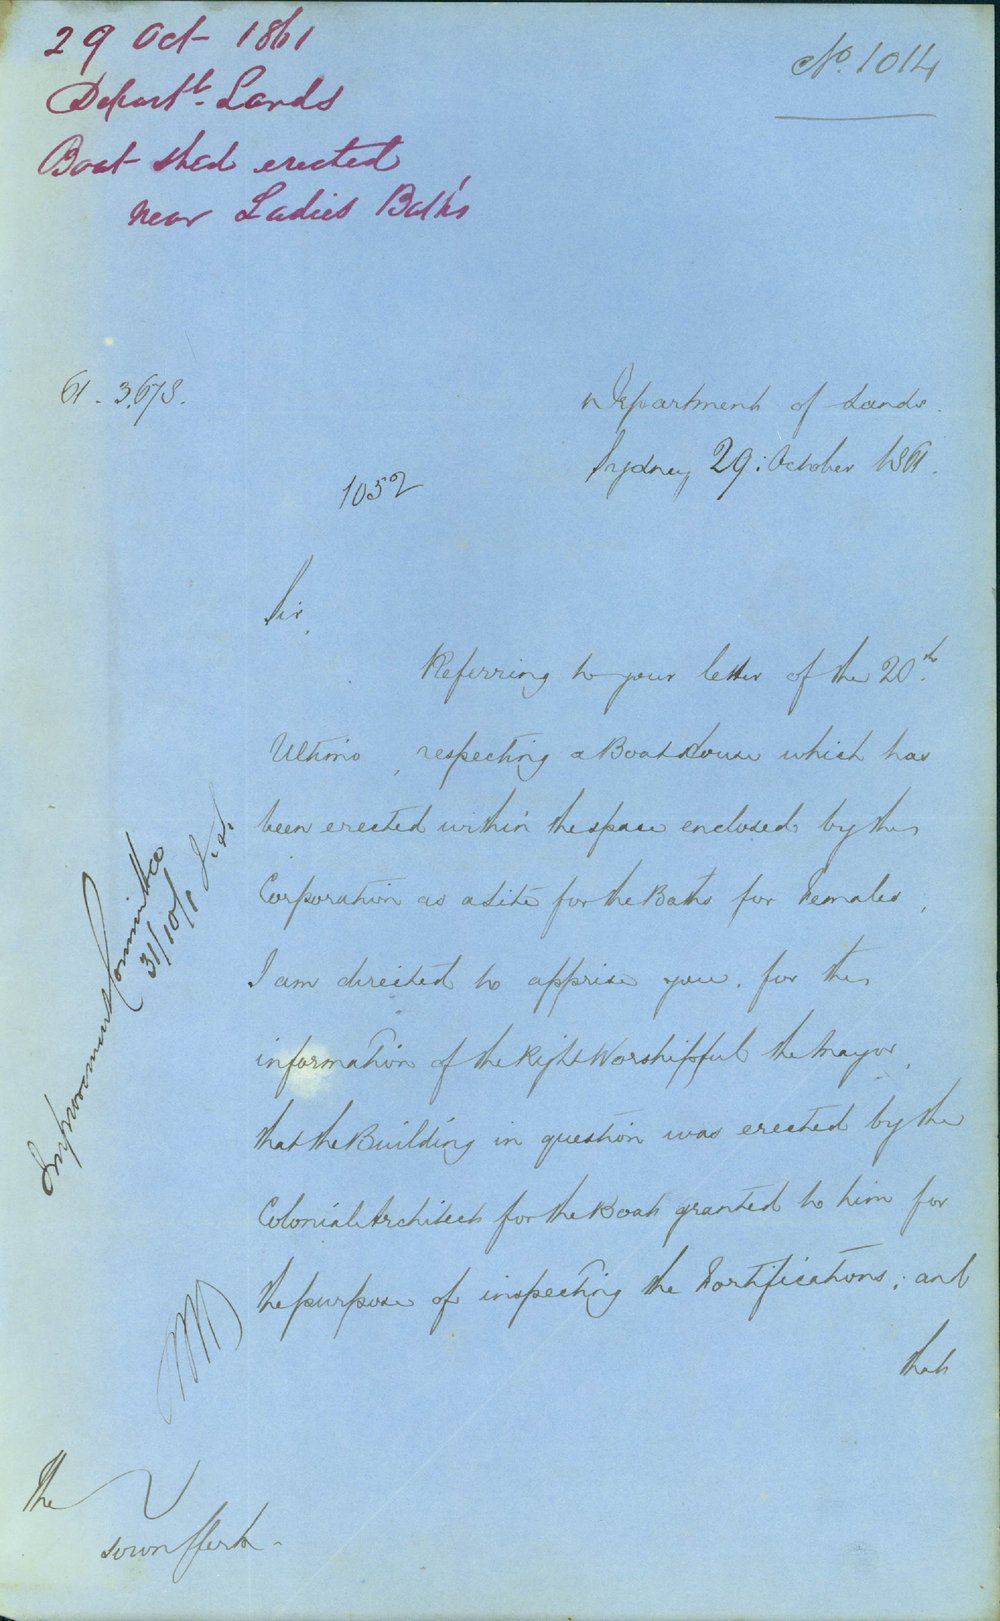 29 Oct 1861
Departt. Lands
Boat shed erected
near Ladies Baths
No. 1014
61-3,673.
Department of Lands.
Sydney 29: October 1861.
1052
Sir,
Referring to your letter of the 20th.
Ultimo, respecting a Boat House which has
been erected within the space enclosed by the
Corporation as a site for the Baths for Females,
I am directed to apprise you, for the
information of the Right Worshipful the Mayor,
that the Building in question was erected by the
Colonial Architect for the Boat granted to him for
the purpose of inspecting the Fortifications; and
that
Improvement Committee
31/10/61
The
Town Clerk.